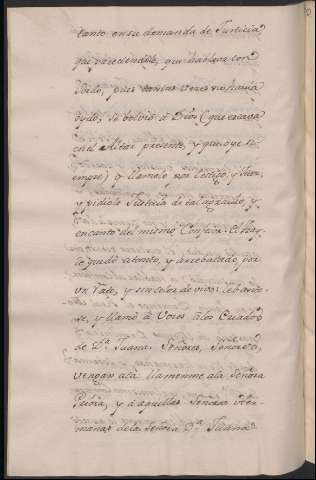 tanto en su demanda de Justicia
que pareciendole, que hablava con
pues tantas veces no havia
oydo, se bolvió à Dios (que estava
en el Altar presente, y que oye si
empre) y llamole por testigo, y Juez,
y pidiole Justicia de tal agravio, y
en canto del mismo Confesor. El Fray
le quedó atonito, y arrebatado, por
un rato, y sin color de vivo: lebanto-
se, y llamó à voces à los Criados
de D.ª Juana. Señores, Señores,
vengan acà llamenme à la Señora
Priora, y à aquellas Señoras Her-
manas de la Señora D.ª Juana